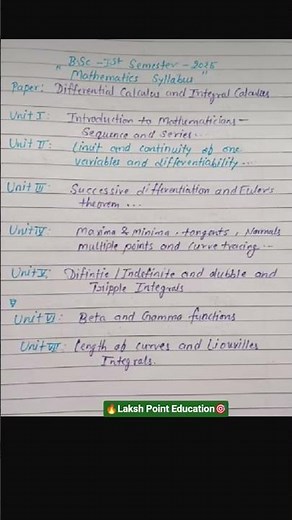 " BSc - Ist Semester - 2025
Mathematics Syllabus "
Paper: Differential Calculus and Integral Calculus
Unit I: Introduction to Mathematicians -
Sequence and Series..
Unit II: Limit and continuity of one
variables and differentiability...
Unit III: Successive differentiation and Euler's
theorem ...
Unit IV: Maxima & minima . tangents, Normals
multiple points and curve tracing...
Unit V: Difintie / Indefinite and dubble and
Tripple Integrals
Unit VI: Beta and Gamma functions
Unit VII: Length of curves and Liouvilles
Integrals.
🔥Laksh Point Education🎯